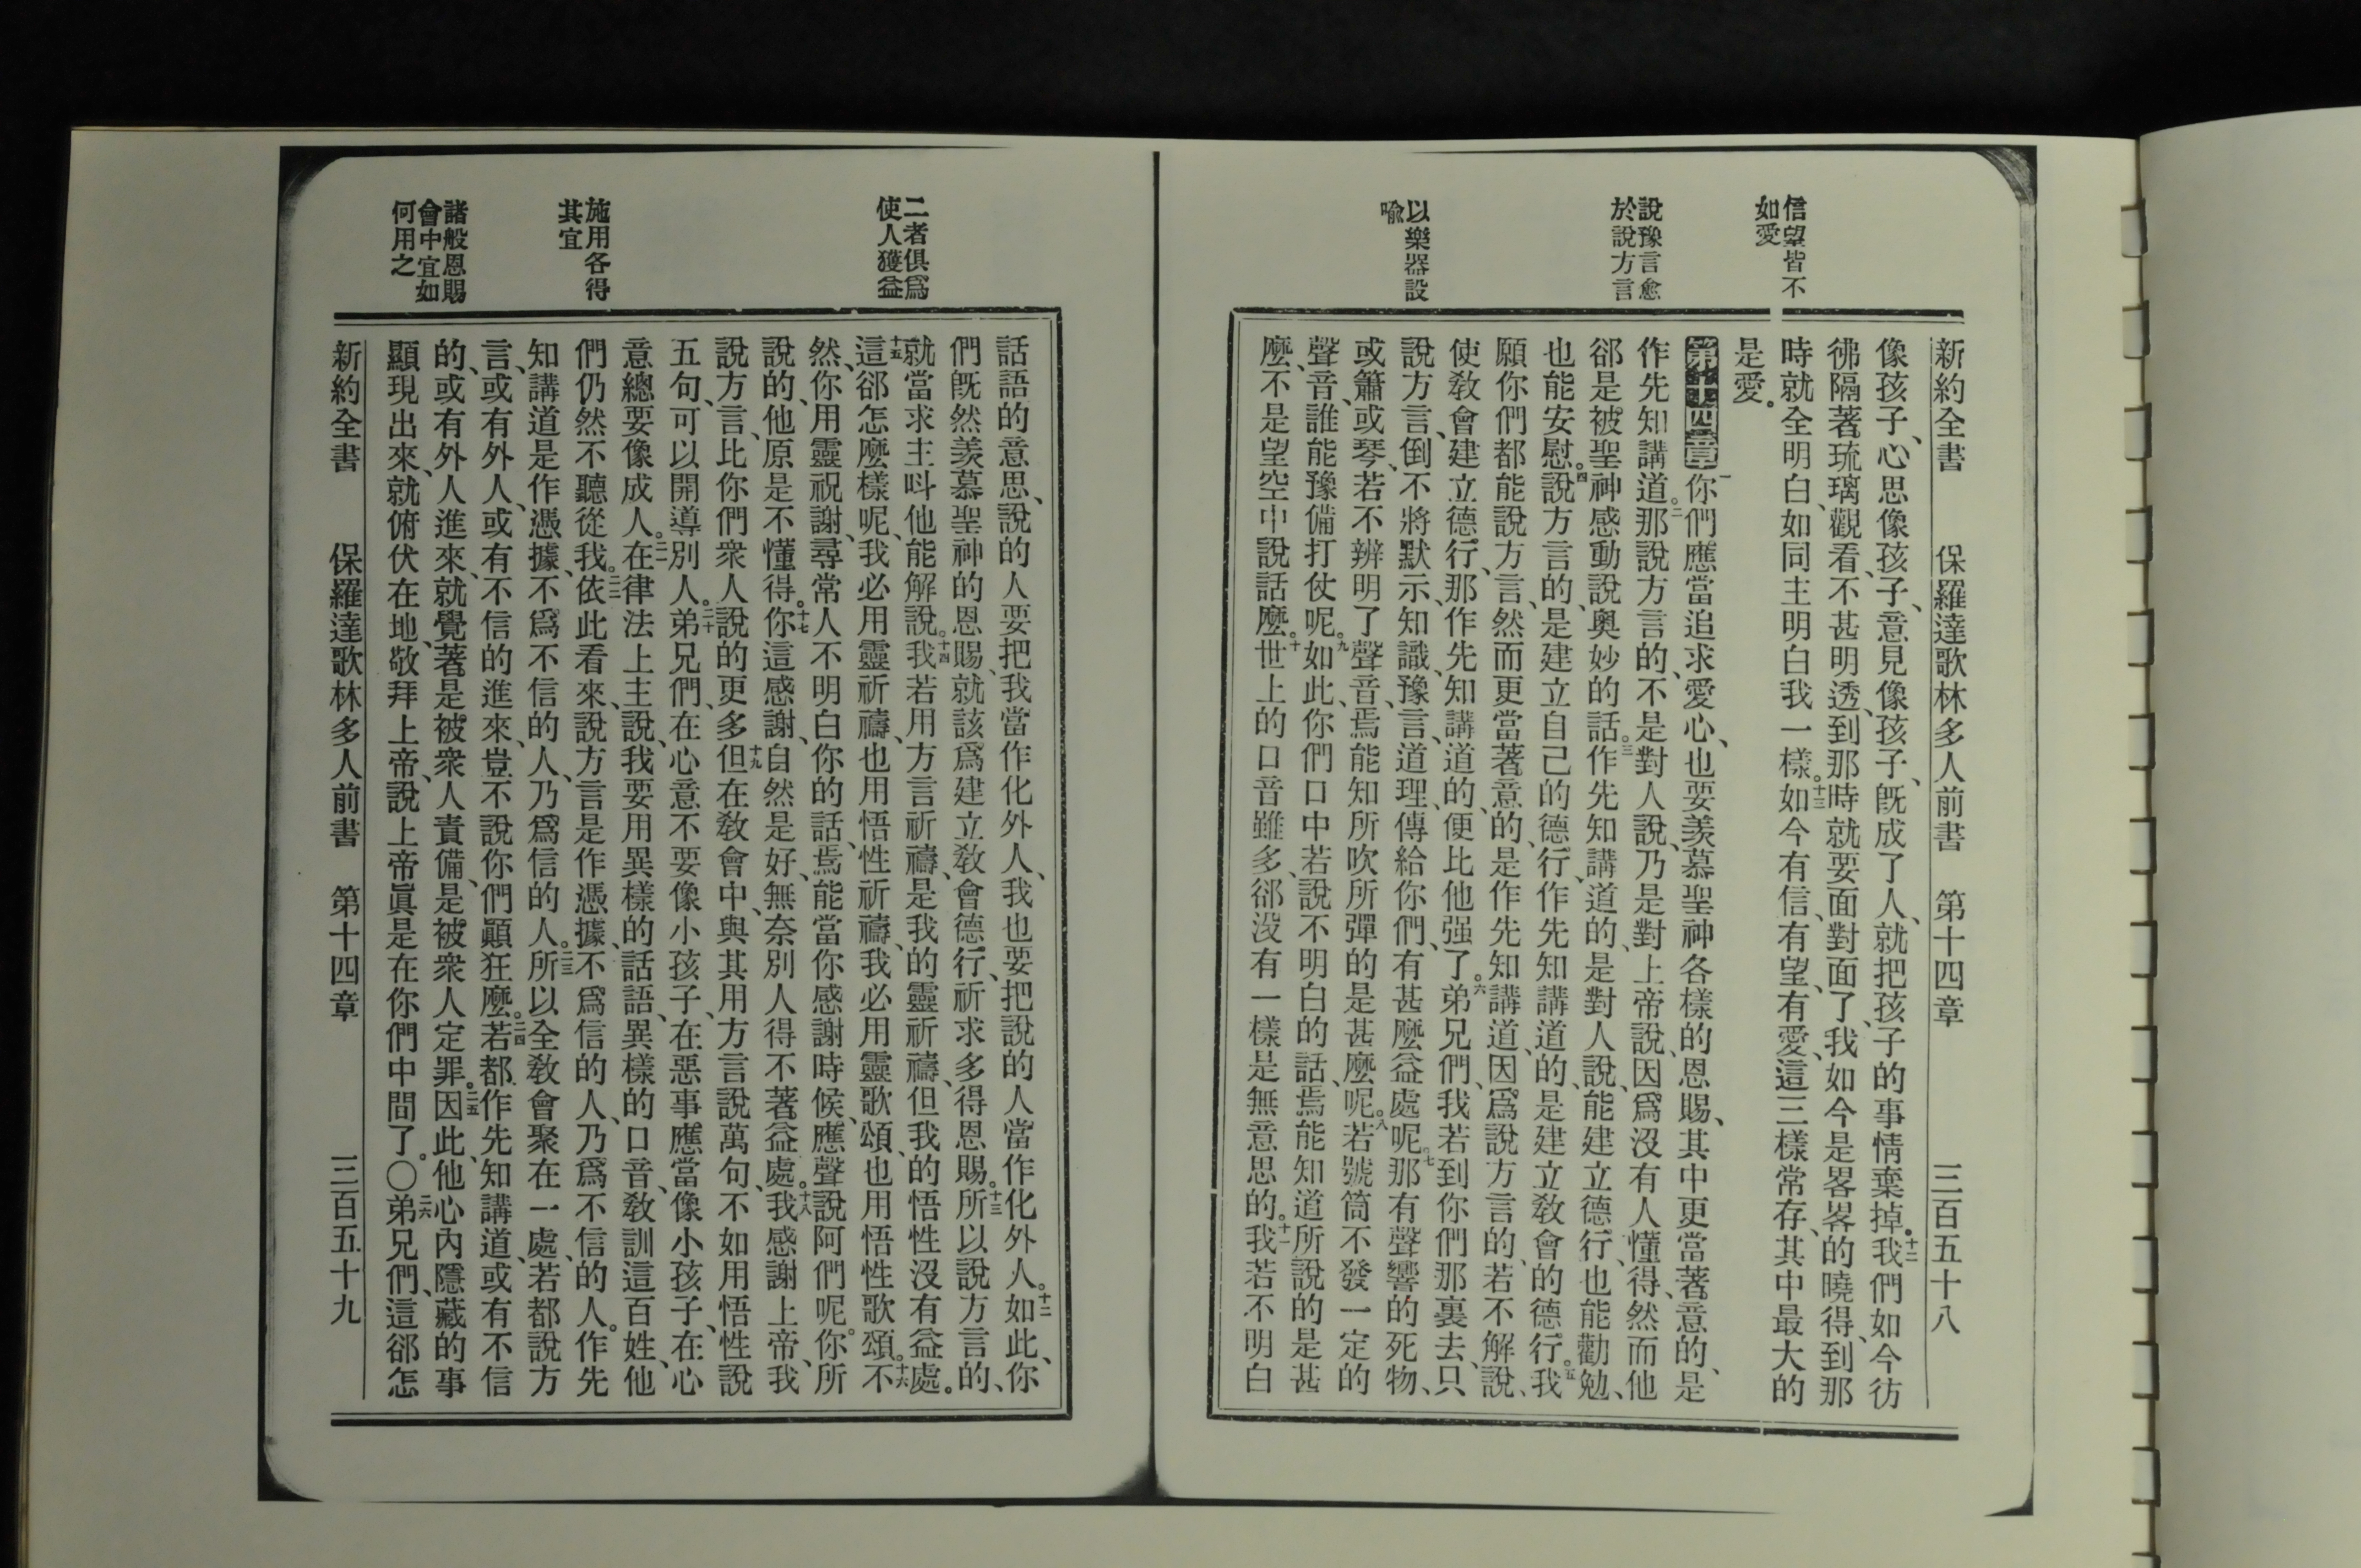 信望皆不
如愛
說豫言愈
於說方言
以樂器設
喩
新約全書 保羅達歌林多人前書 第十四章 三百五十八
像孩子、心思像孩子、意見像孩子、旣成了人、就把孩子的事情棄掉。十二我們如今彷
彿隔著琉璃觀看、不甚明透、到那時就要面對面了、我如今是畧畧的曉得、到那
時就全明白、如同主明白我一樣。十三如今有信、有望、有愛、這三樣常存、其中最大的
是愛。
第十四章 一你們應當追求愛心、也要羨慕聖神各樣的恩賜、其中更當著意的、是
作先知講道。二那說方言的、不是對人說、乃是對上帝說、因爲沒有人懂得、然而他
郤是被聖神感動說奧妙的話。三作先知講道的、是對人說、能建立德行、也能勸勉、
也能安慰。四說方言的、是建立自己的德行、作先知講道的、是建立敎會的德行。五我
願你們都能說方言、然而更當著意的、是作先知講道、因爲說方言的、若不解說、
使敎會建立德行、那作先知講道的、便比他强了。六弟兄們、我若到你們那裏去、只
說方言、倒不將默示、知識、豫言、道理、傳給你們、有甚麼益處呢。七那有聲響的死物、
或簫或琴、若不辨明了聲音、焉能知所吹所彈的是甚麼呢。八若號筒不發一定的
聲音、誰能豫備打仗呢。九如此、你們口中若說不明白的話、焉能知道所說的是甚
麼、不是望空中說話麼。十世上的口音雖多、郤没有一樣是無意思的。十一我若不明白
二者俱爲
使人獲益
施用各得
其宜
諸般恩賜
會中宜如
何用之
話語的意思、說的人要把我當作化外人、我也要把說的人當作化外人。十二如此、你
們旣然羨慕聖神的恩賜、就該爲建立敎會德行、祈求多得恩賜。十三所以說方言的、
就當求主呌他能解說。十四我若用方言祈禱、是我的靈祈禱、但我的悟性沒有益處。
十五這郤怎麼樣呢、我必用靈祈禱、也用悟性祈禱、我必用靈歌頌、也用悟性歌頌。十六不
然、你用靈祝謝、尋常人不明白你的話、焉能當你感謝時候、應聲說阿們呢。你所
說的、他原是不懂得。十七你這感謝、自然是好、無奈別人得不著益處。十八我感謝上帝、我
說方言、比你們衆人說的更多、十九但在敎會中、與其用方言說萬句、不如用悟性說
五句、可以開導別人。二十弟兄們、在心意不要像小孩子、在惡事應當像小孩子、在心
意總要像成人。二一在律法上主說、我要用異樣的話語、異樣的口音、敎訓這百姓、他
們仍然不聽從我。二二依此看來、說方言是作憑據、不爲信的人、乃爲不信的人。作先
知講道是作憑據、不爲不信的人、乃爲信的人。二三所以全敎會聚在一處、若都說方
言、或有外人、或有不信的進來、豈不說你們顚狂麼。二四若都作先知講道、或有不信
的、或有外人進來、就覺著是被衆人責備、是被衆人定罪。二五因此、他心內隱藏的事
顯現出來、就俯伏在地、敬拜上帝、說上帝眞是在你們中間了。〇二六弟兄們、這郤怎
新約全書 保羅達歌林多人前書 第十四章 三百五十九